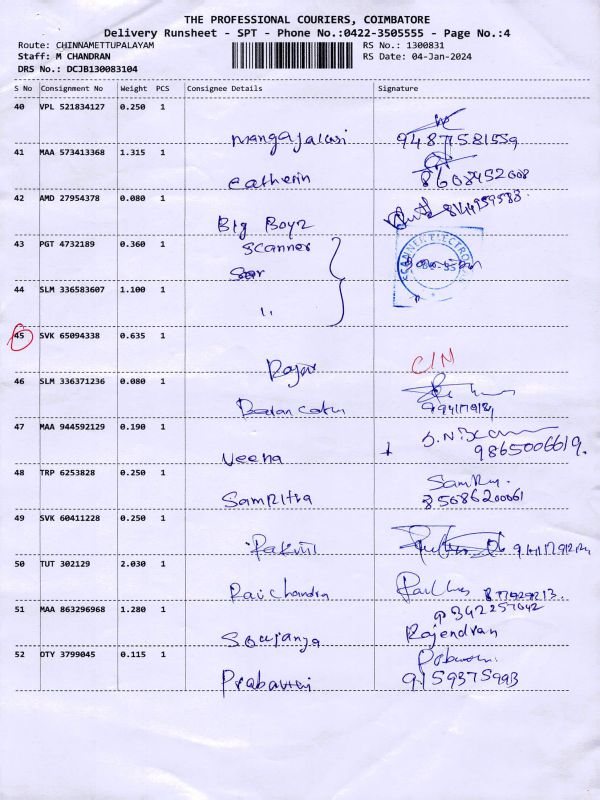 THE PROFESSIONAL COURIERS, COIMBATORE
Delivery Runsheet - SPT - Phone No.:0422-3505555 - Page No.:4
Route: CHINNAMETTUPALAYAM RS No.: 1300831
Staff: M CHANDRAN RS Date: 04-Jan-2024
DRS No.: DCJB130083104
S No Consignment No Weight PCS Consignee Details Signature
40 VPL 521834127 0.250 1
9487581559
41 MAA 573413368 1.315 1
Catherin 8608452008
42 AMD 27954378 0.080 1
Big Boyz
43 PGT 4732189 0.360 1 Scanner
SCANNER
44 SLM 336583607 1.100 1
"
45 SVK 65094338 0.635 1
C/N
46 SLM 336371236 0.080 1
47 MAA 944592129 0.190 1
Veena 9865006619.
48 TRP 6253828 0.250 1
Samritha
49 SVK 60411228 0.250 1
50 TUT 302129 2.030 1
Raichandra
51 MAA 863296968 1.280 1 9342257042
Soujanya Rajendran
52 OTY 3799045 0.115 1
9159375993